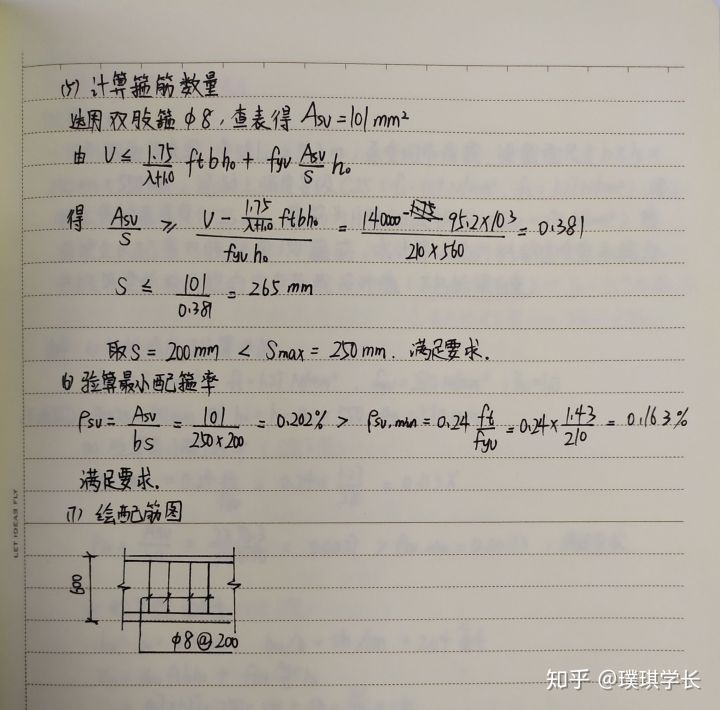 (5) 计算箍筋数量
选用双肢箍 φ8, 查表得 Asv = 101 mm²
由 V ≤ 1.75/(λ+1.0) ft b h₀ + fyv Asv/s h₀
得 Asv/s ≥ (V - 1.75/(λ+1.0) ft b h₀)/(fyv h₀) = (140000 - 95.2×10³)/(210×560) = 0.381
S ≤ 101/0.381 = 265 mm
取 S = 200 mm < Smax = 250 mm. 满足要求.
(6) 验算最小配箍率
ρsv = Asv/bs = 101/(250×200) = 0.202% > ρsv,min = 0.24 ft/fyv = 0.24 × 1.43/210 = 0.163%
满足要求.
(7) 绘配筋图
600
φ8@200
LET IDEAS FLY
知乎 @璞琪学长